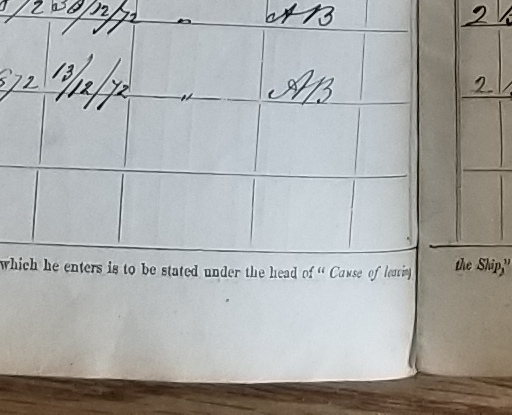 /12/72 „ AB 2
72 13/12/72 „ AB 2
which he enters is to be stated under the head of “ Cause of leaving the Ship,”